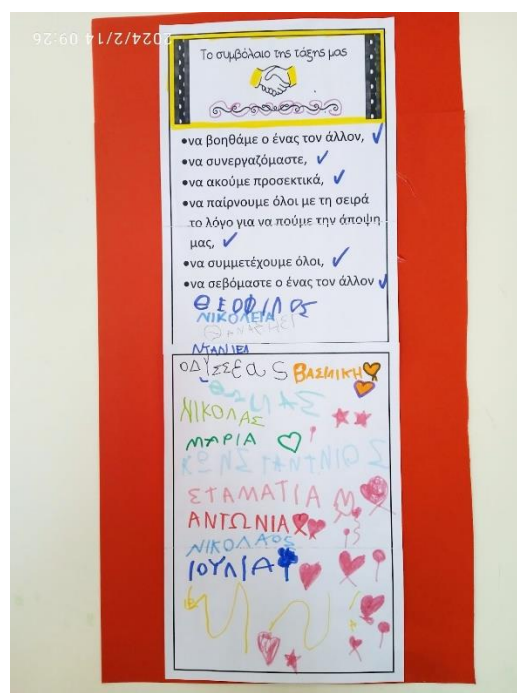 2024/2/14 09:26
Το συμβόλαιο της τάξης μας
•να βοηθάμε ο ένας τον άλλον,
•να συνεργαζόμαστε,
•να ακούμε προσεκτικά,
•να παίρνουμε όλοι με τη σειρά
το λόγο για να πούμε την άποψη
μας,
•να συμμετέχουμε όλοι,
•να σεβόμαστε ο ένας τον άλλον
ΘΕΟΦΙΛΟΣ
ΝΙΚΟΛΕΤΑ
ΝΤΑΝΙΕΛ
ΟΔΥΣΣΕΑS ΒΑΣΙΛΙΚΗ
ΝΙΚΟΛΑΣ
ΜΑΡΙΑ
ΣΤΑΜΑΤΙΑ
ΑΝΤΩΝΙΑ
ΝΙΚΟΛΑΟS
ΙΟΥΛΙΑ